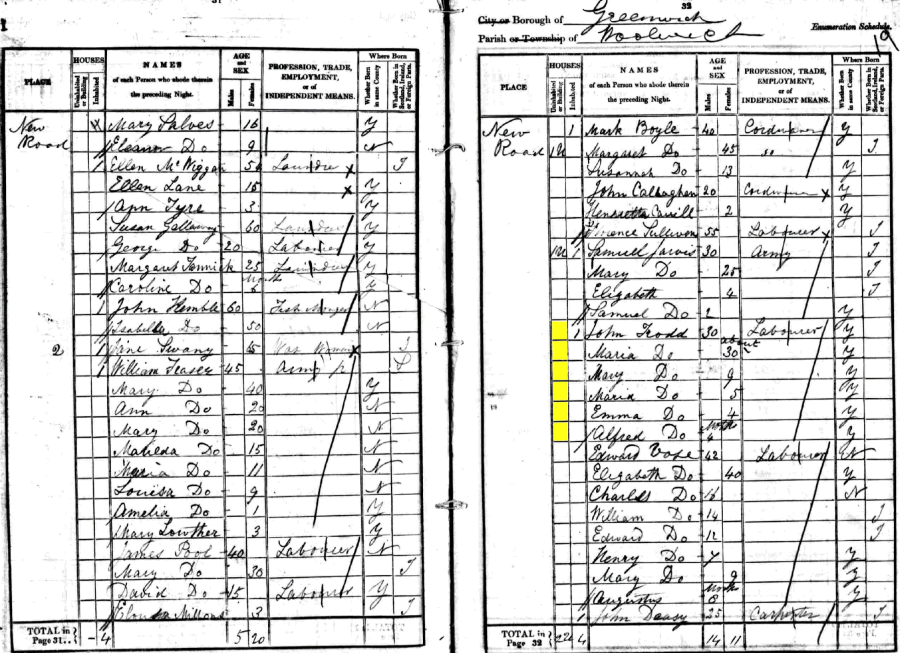 32
City or Borough of Greenwich
Parish or Township of Woolwich
Enumeration Schedule.
19
PLACE
HOUSES
Uninhabited or Building
Inhabited
NAMES
of each Person who abode therein
the preceding Night.
AGE and SEX
Males
Females
PROFESSION, TRADE,
EMPLOYMENT,
or of
INDEPENDENT MEANS.
Where Born
Whether Born in same County
Whether Born in Scotland, Ireland, or Foreign Parts.
New Road
Mary Salves - 16 Y
Eleanor Do 9 N
1 Ellen McWiggan - 50 Laundre I
Ellen Lane - 15 Y
Ann Tyre - 3 Y
Susan Galloway 60 Laundre Y
George Do 20 Labourer Y
Margaret Fennick 25 Laundre Y
Caroline Do Month 6 Y
1 John Hemble 60 Fish Monger N
Isabella Do 50 N
2 1 Jane Swany 45 Was Woman I
1 William Teasey 45 Army P
Mary Do - 40 Y
Ann Do 20 N
Mary Do 20 N
Matilda Do - 15 N
Maria Do - 11 N
Louisa Do 9 N
Amelia Do - 1 Y
Mary Lowther - 3 Y
James Pool 40 Labourer N
Mary Do 30 I
David Do 15 Labourer Y
Millons 3 I
TOTAL in Page 31.. - 4 5 20
PLACE
HOUSES
Uninhabited or Building
Inhabited
NAMES
of each Person who abode therein
the preceding Night.
AGE and SEX
Males
Females
PROFESSION, TRADE,
EMPLOYMENT,
or of
INDEPENDENT MEANS.
Where Born
Whether Born in same County
Whether Born in Scotland, Ireland, or Foreign Parts.
New Road
1 Mark Boyle 40 Cordwainer Y
1U Margaret Do - 45 I
Susannah Do - 13 Y
John Callaghan 20 Cordwainer Y
Henrietta Cavill - 2 Y
Florence Sullivan 55 Labourer I
1U 1 Samuell Jarvis 30 Army I
Mary Do 25 I
Elizabeth - 4 I
Samuel Do 2 Y
1 John Trodd 30 Labourer Y
Maria Do - about 30 Y
Mary Do - 9 Y
Maria Do - 5 Y
Emma Do - 4 Y
Alfred Do Months 4 Y
Edward Vose 42 Labourer N
Elizabeth Do - 40 Y
Charles Do 16 N
William Do 14 I
Edward Do 12 I
Henry Do 7 Y
Mary Do - 9 Y
Augustus Months 8 Y
1 John Deasy 25 Carpenter I
TOTAL in Page 32 2U 4 14 11